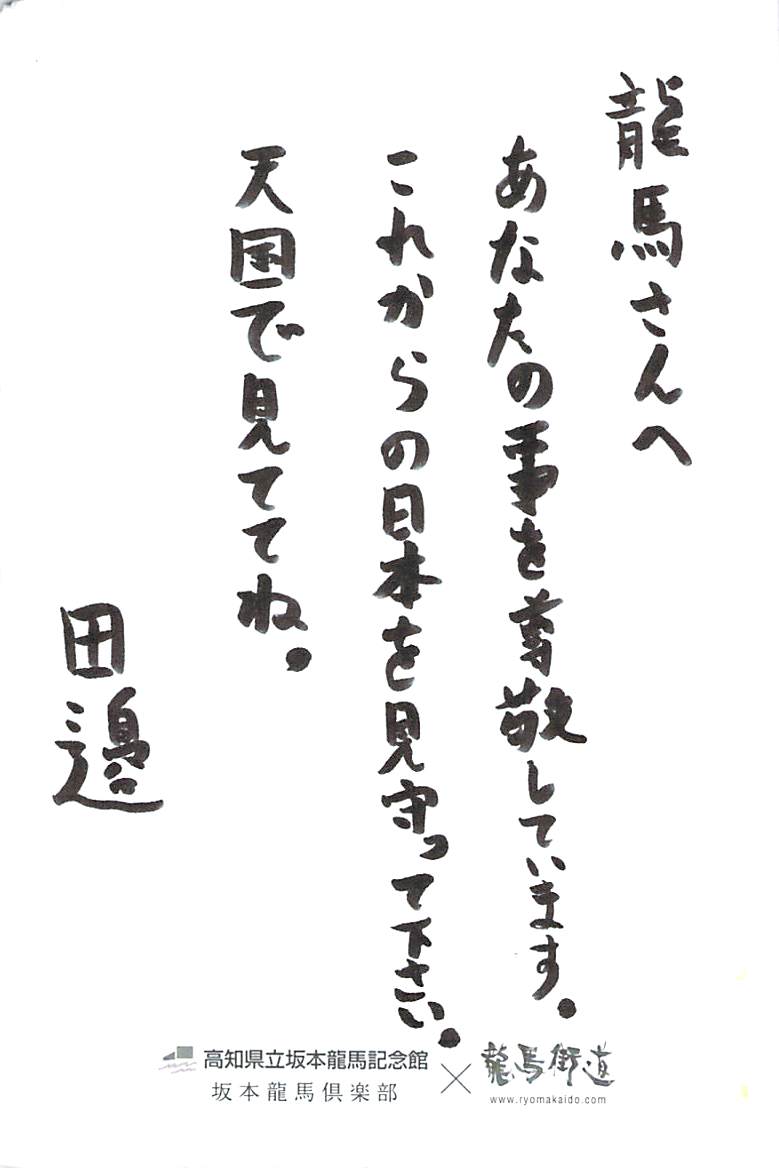 龍馬さんへ
あなたの事を尊敬しています。
これからの日本を見守って下さい。
天国で見ててね。
田邉
高知県立坂本龍馬記念館
坂本龍馬倶楽部
×
龍馬街道
www.ryomakaido.com